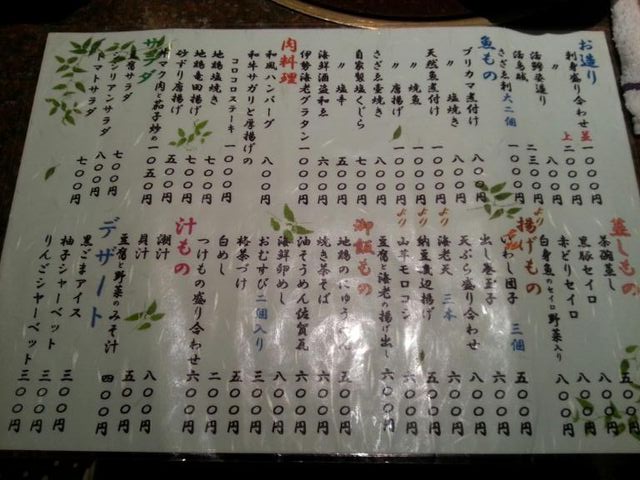 お造り
刺身盛り合わせ 並 一〇〇〇円
上 二〇〇〇円
活鯵姿造り 八〇〇円
活烏賊 二三〇〇円より
さざえ刺 大二個 一〇〇〇円
魚もの
ブリカマ煮付け 八〇〇円
〃 塩焼き 八〇〇円
天然魚煮付け 一〇〇〇円より
〃 焼魚 一〇〇〇円より
〃 唐揚げ 一〇〇〇円より
さざえ壷焼き 七〇〇円
自家製塩くじら 七〇〇円
〃 塩辛 五〇〇円
海鮮酒盗和え 六〇〇円
伊勢海老グラタン 一〇〇〇円
肉料理
和風ハンバーグ 八〇〇円
和牛サガリと唐揚げの
コロコロステーキ 一〇〇〇円
地鶏塩焼き 七〇〇円
地鶏竜田揚げ 七〇〇円
砂ずり唐揚げ 五〇〇円
マク肉と茄子炒め 一〇五〇円
サラダ
豆腐サラダ 七〇〇円
リアンサラダ 八〇〇円
トマトサラダ 七〇〇円
蒸しもの
茶碗蒸し 五〇〇円
黒豚セイロ 八〇〇円
赤どりセイロ 八〇〇円
白身魚のセイロ野菜入り 八〇〇円
揚げもの
いわし団子 三個 五〇〇円
出し巻玉子 六〇〇円
天ぷら盛り合わせ 八〇〇円
海老天 三本 六〇〇円
納豆磯辺揚げ 五〇〇円
山芋モロコシ 六〇〇円
豆腐と海老の揚げ出し 六〇〇円
御飯もの
地鶏のにゅうめん 六〇〇円
焼き茶そば 六〇〇円
油そうめん佐賀瓦 六〇〇円
海鮮卵めし 八〇〇円
おむすび 二個入り 三〇〇円
柊茶づけ 五〇〇円
白めし 二〇〇円
つけもの盛り合わせ 六〇〇円
汁もの
潮汁 八〇〇円
貝汁 五〇〇円
豆腐と野菜のみそ汁 四〇〇円
デザート
黒ごまアイス 三〇〇円
柚子シャーベット 三〇〇円
りんごシャーベット 三〇〇円